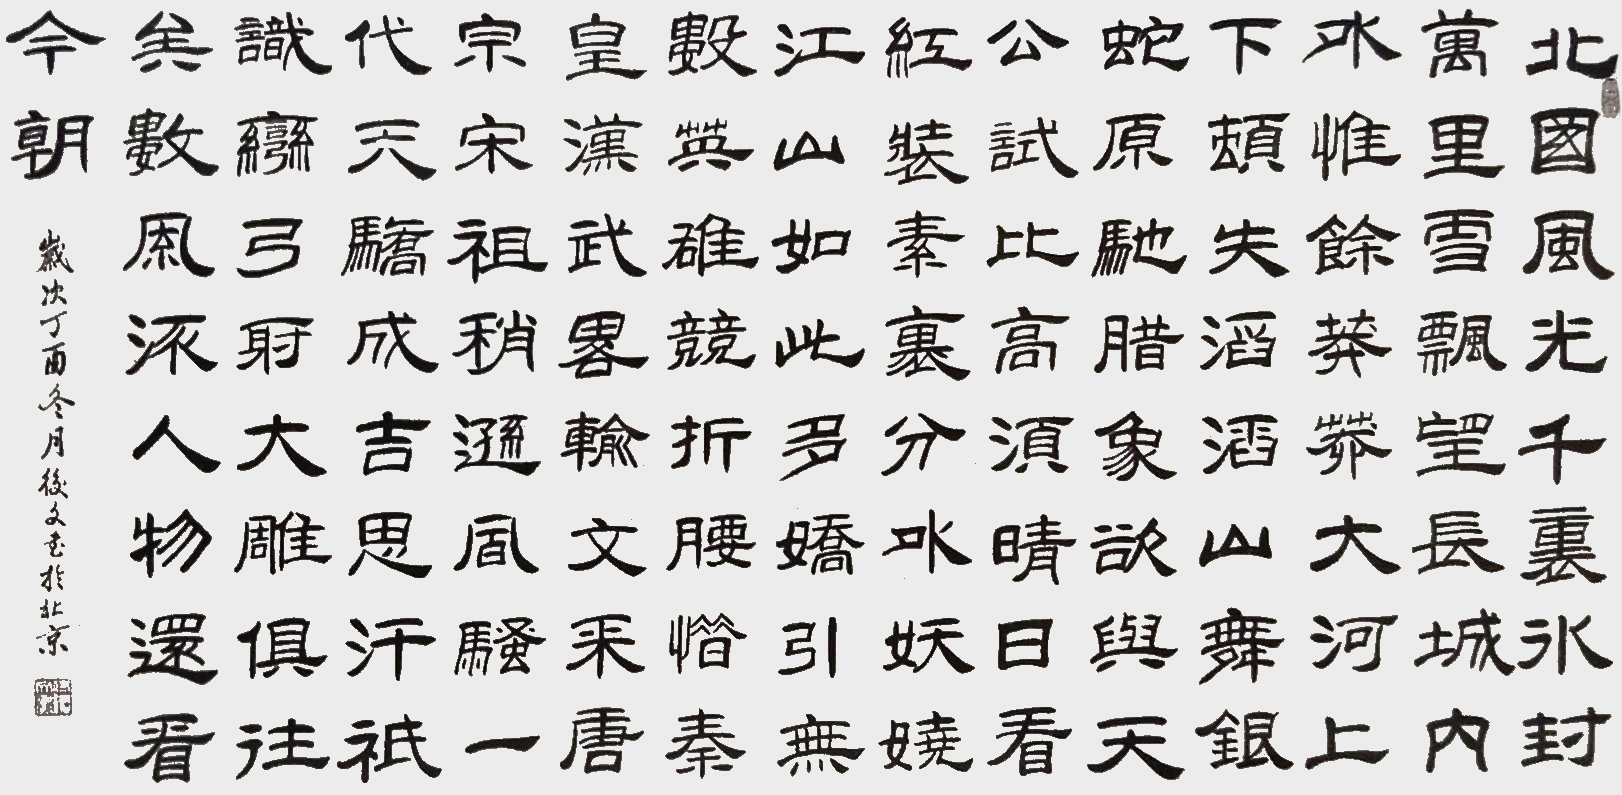 北國風光千裏冰封
萬里雪飄望長城內
外惟餘莽莽大河上
下頓失滔滔山舞銀
蛇原馳腊象欲與天
公試比高須晴日看
紅裝素裏分外妖嬈
江山如此多嬌引無
數英雄競折腰惜秦
皇漢武畧輸文采唐
宗宋祖稍遜風騷一
代天驕成吉思汗祇
識彎弓射大雕俱往
矣數風流人物還看
今朝
歲次丁酉冬月後文書於北京